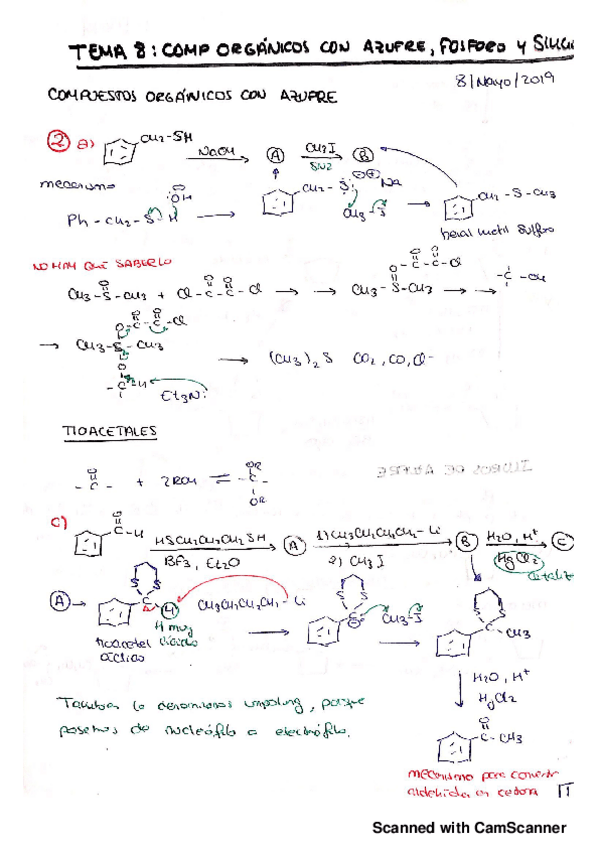 TEMA 8: COMP ORGÁNICOS CON AZUFRE, FOSFORO Y SILICI
8/Mayo/2019
COMPUESTOS ORGÁNICOS CON AZUFRE
2 a) CH2-SH NaOH A CH3I SN2 B
mecanismo
Ph-CH2-S-H OH CH2-S Na CH3-I CH2-S-CH3
NO HAY QUE SABERLO
CH3-S-CH3 + Cl-C-C-Cl CH3-S-CH3
CH3-S-CH3 (CH3)2S CO2, CO, Cl-
Et3N:
TIOACETALES
-C- + 2ROH ⇌ -C- OR OR
C) C-H HSCH2CH2CH2SH A 1) CH3CH2CH2CH2-Li B H2O, H+ C
BF3, Et2O 2) CH3I HgCl2
A S S H CH3CH2CH2CH2-Li S S CH3-I S S CH3
H muy ácido
tioacetal cíclico
H2O, H+
HgCl2
También lo denominamos umpolung, porque
pasamos de nucleófilo a electrófilo.
C-CH3
mecanismo para convertir
aldehídos en cetona
Scanned with CamScanner